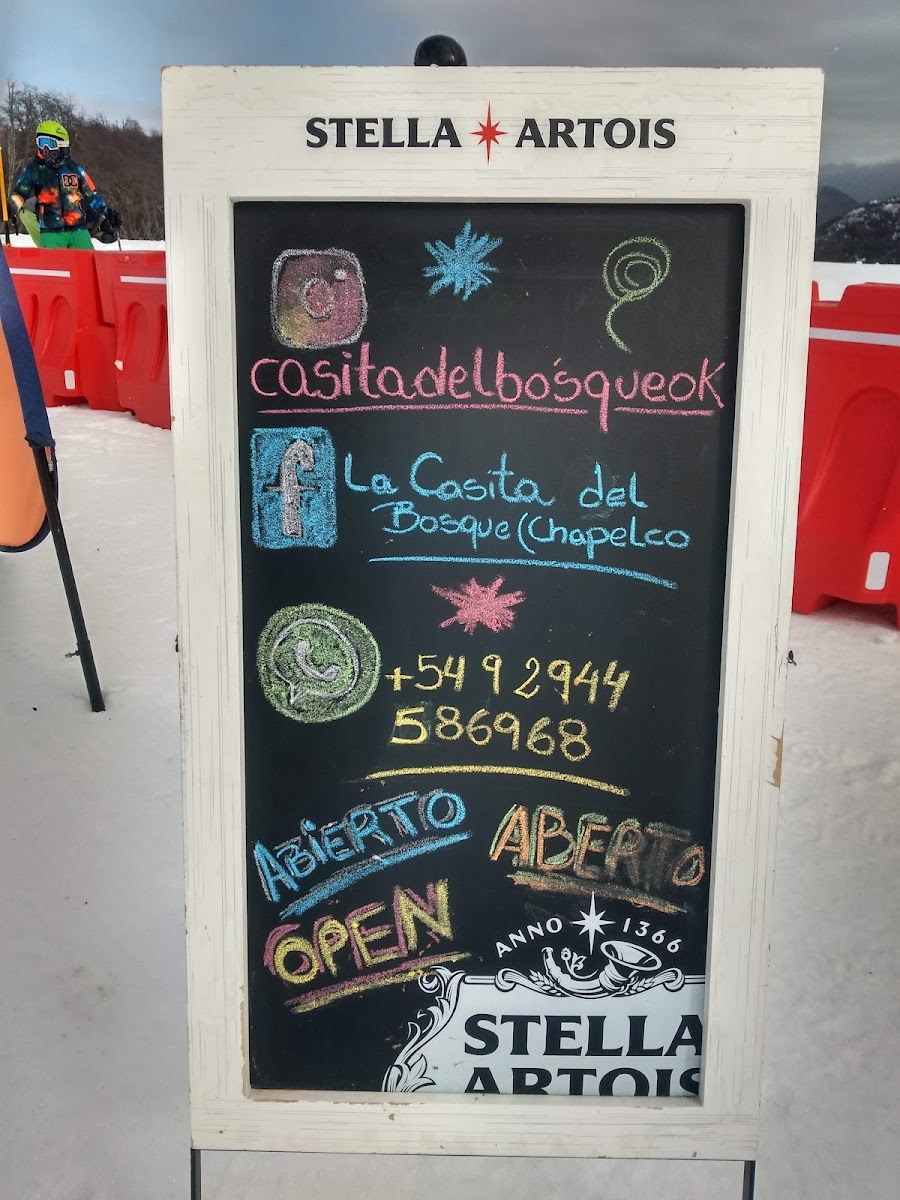 STELLA ARTOIS
casitadelbosqueok
f La Casita del
Bosque (Chapelco
+54 9 2944
586968
ABiERTO
ABERTO
OPEN
ANNO 1366
STELLA
ARTOIS